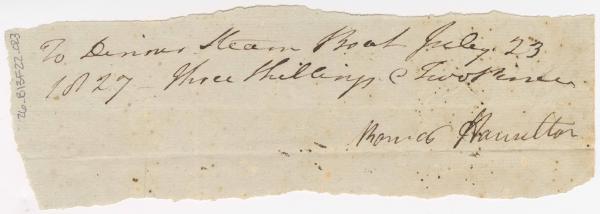 To Dinner Steam Boat July 23
1827 – Three Shillings & Two Pence
Hamilton
26_B13F22_023